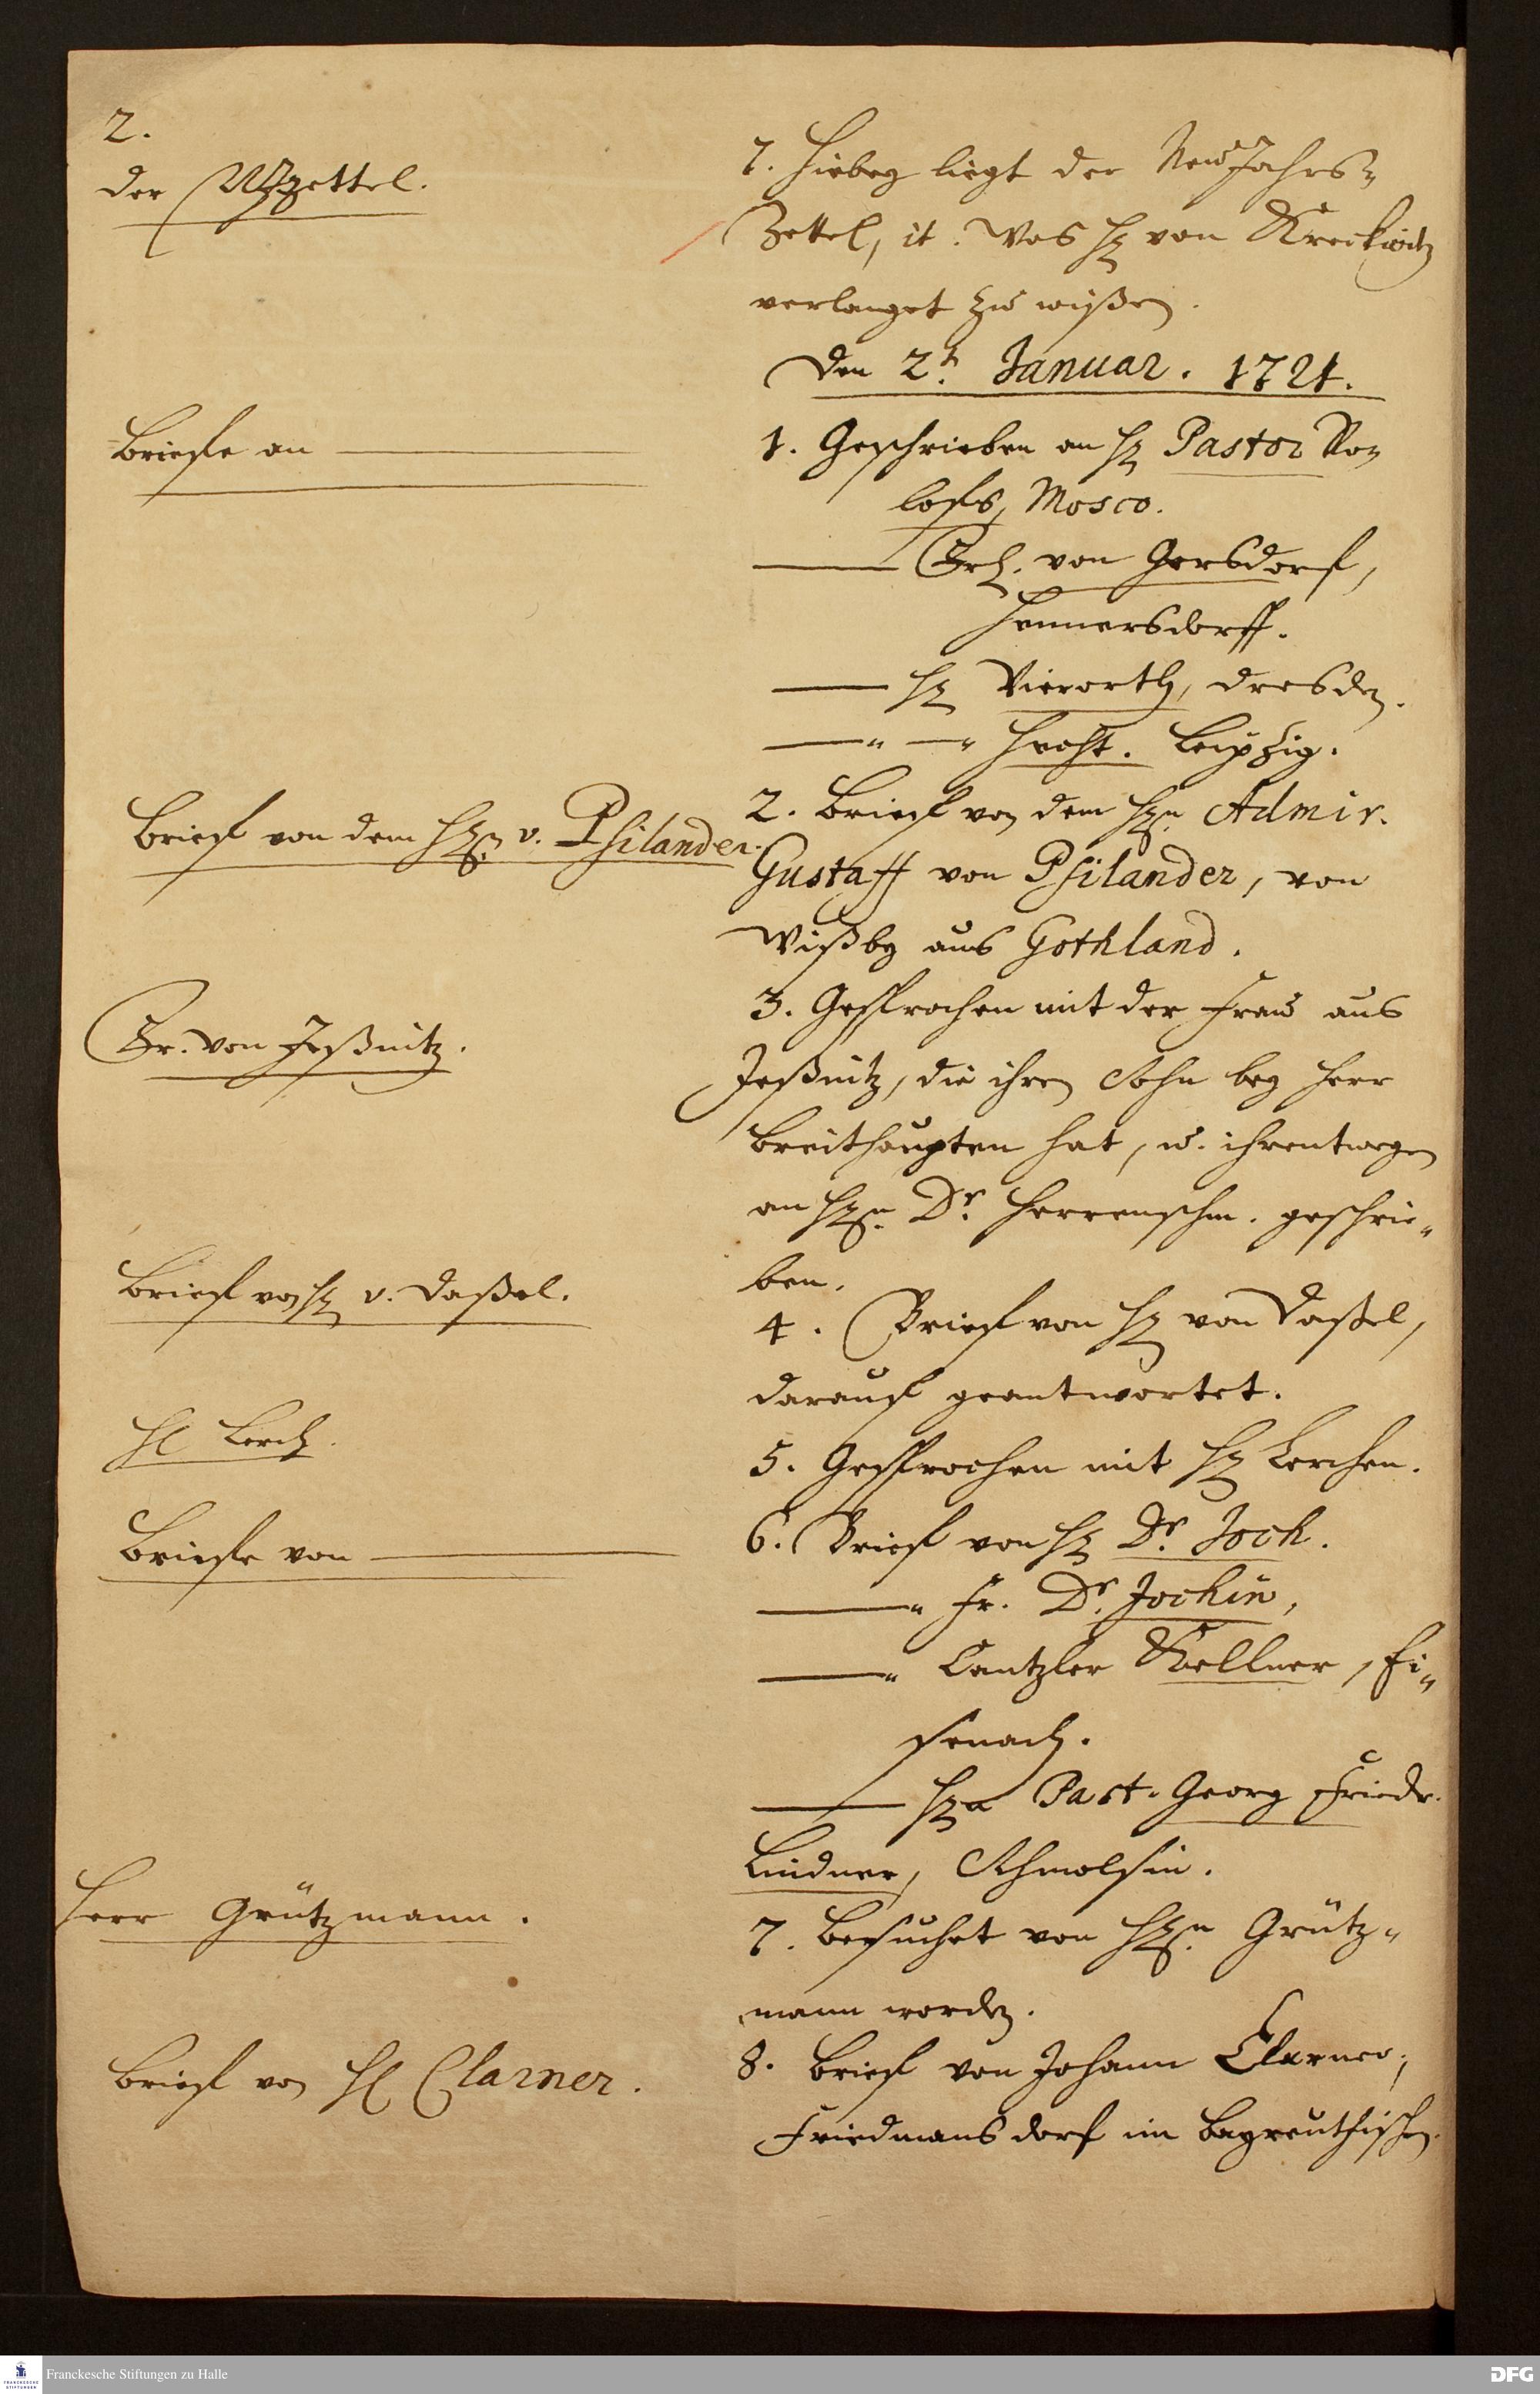 2.
der NJzettel.
7. hiebey liegt der NeuJahrs-
Zettel, it. was H von Kreckwitz
verlanget zu wißen.
den 2t. Januar. 1721.
Briefe an
1. Geschrieben an H Pastor Ro-
loffs, Mosco.
Frh. von Gersdorf,
Hennersdorff.
H Vierorth, Dresden.
Hecht. Leipzig.
Brief von dem Hn. v. Psilander.
2. Brief von dem Hn. Admir.
Gustaff von Psilander, von
Wißby aus Gothland.
Fr. von Jeßnitz.
3. Gesprochen mit der Frau aus
Jeßnitz, die ihren Sohn bey Herr
Breithaupten hat, u. ihrentwegen
an Hn. Dr. Herrenschm. geschrie-
ben.
Brief von H v. Daßel.
4. Brief von H von Daßel,
darauf geantwortet.
H Lerch.
5. Gesprochen mit H Lerchen.
Briefe von
6. Brief von H Dr. Joch.
" Fr. Dr. Jochin,
" Cantzler Kellner, Ei-
senach.
Hn Past. Georg Friedr.
Lindner, Schmolsin.
Herr Grützmann.
7. Besuchet von Hn. Grütz-
mann worden.
Brief von H Clarner.
8. Brief von Johann Clarner,
Friedmansdorf im Bayreuthischen.
Franckesche Stiftungen zu Halle
FRANCKESCHE STIFTUNGEN
DFG